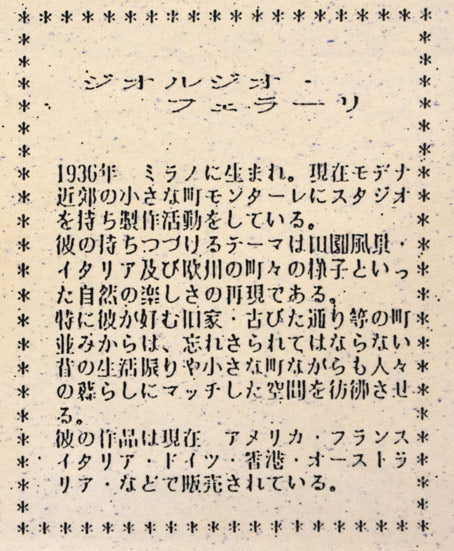 ジオルジオ・
フェラーリ
1936年 ミラノに生まれ。現在モデナ
近郊の小さな町モンターレにスタジオ
を持ち製作活動をしている。
彼の持ちつづけるテーマは田園風景・
イタリア及び欧州の町々の様子といっ
た自然の楽しさの再現である。
特に彼が好む旧家・古びた通り等の町
並みからは、忘れさられてはならない
昔の生活振りや小さな町ながらも人々
の暮らしにマッチした空間を彷彿させ
る。
彼の作品は現在 アメリカ・フランス
イタリア・ドイツ・香港・オーストラ
リア・などで販売されている。